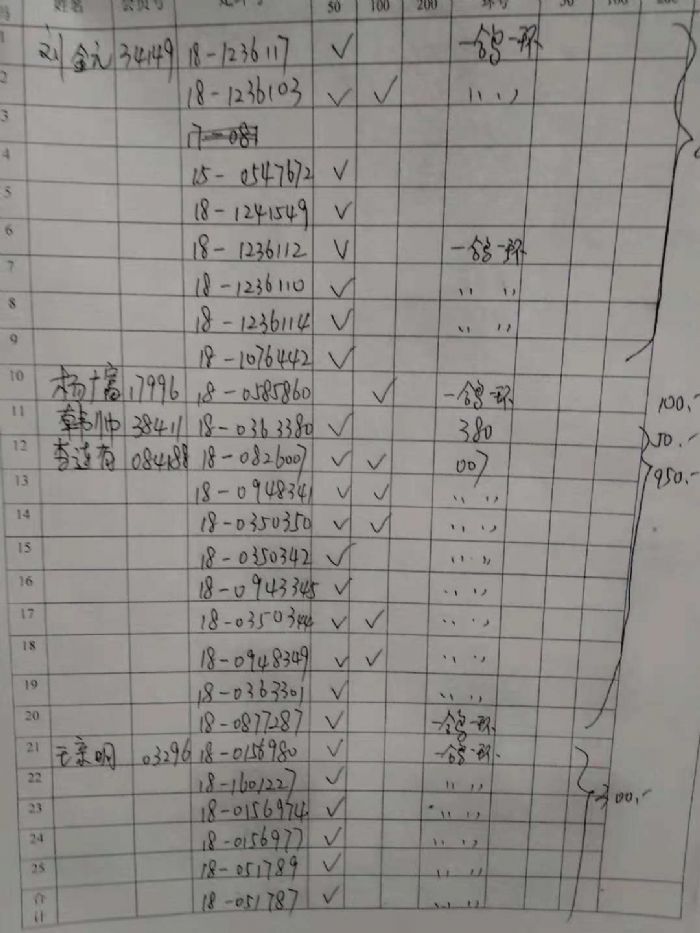 姓名 50 100 200
1 刘金元 34149 18-1236117 ✓ 一鸽一环
2 18-1236103 ✓ ✓ 〃 〃
3
4 15-0547672 ✓
5 18-1241549 ✓
6 18-1236112 ✓ 一鸽一环
7 18-1236110 ✓ 〃 〃
8 18-1236114 ✓ 〃 〃
9 18-1076442 ✓
10 杨十富 17996 18-0585860 ✓ 一鸽一环 100.-
11 韩帅 38411 18-0363380 ✓ 380 50.-
12 084188 18-0826007 ✓ ✓ 007 950.-
13 18-0948341 ✓ ✓ 〃 〃
14 18-0350350 ✓ ✓ 〃 〃
15 18-0350342 ✓ 〃 〃
16 18-0943345 ✓ 〃 〃
17 18-0350344 ✓ ✓ 〃 〃
18 18-0948349 ✓ ✓ 〃 〃
19 18-0363301 ✓ 〃 〃
20 18-0877287 ✓ 一鸽一环
21 03296 18-0156980 ✓ 一鸽一环
22 18-1601227 ✓ 〃 〃 300.-
23 18-0156974 ✓ 〃 〃
24 18-0156977 ✓ 〃 〃
25 18-051789 ✓ 〃 〃
合计 18-051787 ✓ 〃 〃